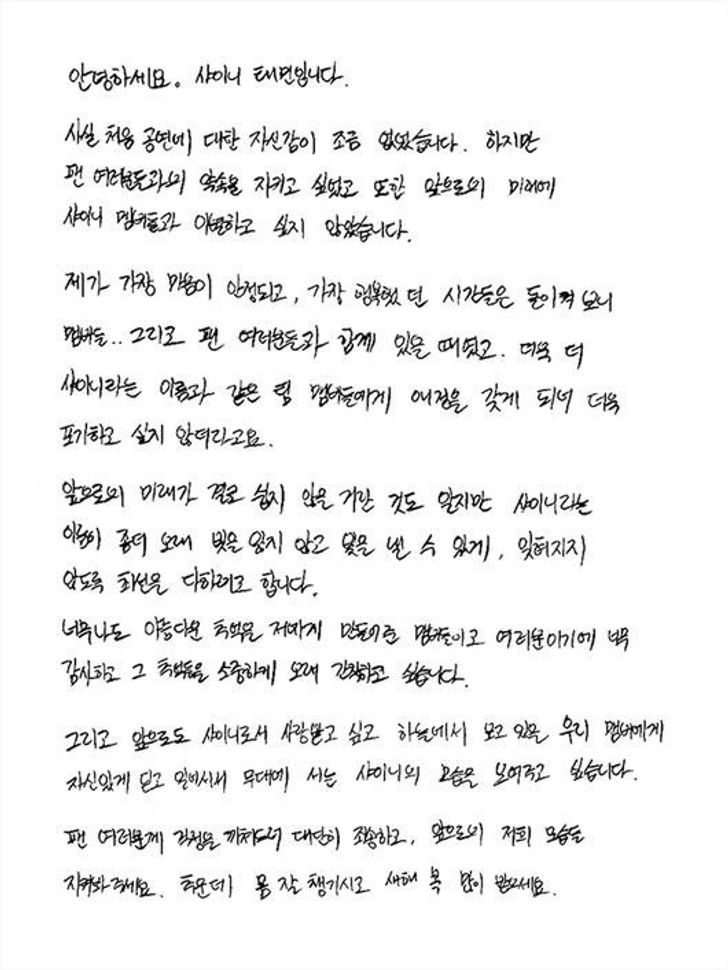 안녕하세요. 샤이니 태민입니다.
사실 처음 공연에 대한 자신감이 조금 없었습니다. 하지만
팬 여러분들과의 약속을 지키고 싶었고 또한 앞으로의 미래에
샤이니 멤버들과 이별하고 싶지 않았습니다.
제가 가장 마음이 안정되고, 가장 행복했던 시간들은 돌이켜 보니
멤버들.. 그리고 팬 여러분들과 함께 있을 때였고. 더욱 더
샤이니라는 이름과 같은 팀 멤버들에게 애정을 갖게 되어 더욱
포기하고 싶지 않더라고요.
앞으로의 미래가 결코 쉽지 않을 거란 것도 알지만 샤이니라는
이름이 좀더 오래 빛을 잃지 않고 빛을 낼 수 있게, 잊혀지지
않도록 최선을 다하려고 합니다.
너무나도 아름다운 추억을 저에게 만들어준 멤버들이고 여러분이기에 너무
감사하고 그 추억들을 소중하게 오래 간직하고 싶습니다.
그리고 앞으로도 샤이니로서 사랑받고 싶고 하늘에서 보고 있을 우리 멤버에게
자신있게 믿고 일어서서 무대에 서는 샤이니의 모습을 보여주고 싶습니다.
팬 여러분께 걱정을 끼쳐드려 대단히 죄송하고, 앞으로의 저희 모습들
지켜봐주세요. 추운데 몸 잘 챙기시고 새해 복 많이 받으세요.